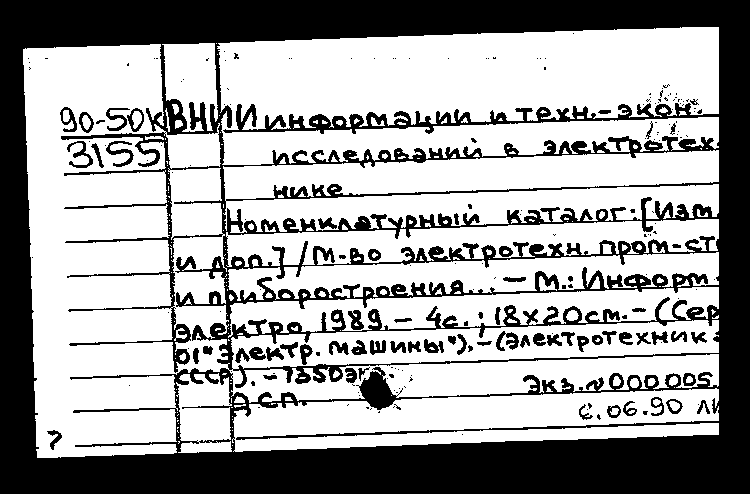 90-50к ВНИИ информации и техн.-экон.
3155 исследований в электротех-
нике.
Номенклатурный каталог: [Изм.
и доп.] / М-во электротехн. пром-сти
и приборостроения... – М.: Информ-
электро, 1989. – 4с.; 18х20см. – (Сер
01 "Электр. машины"). – (Электротехника
СССР). – 7350экз.
ДСП.
Экз.№000005.
6.06.90 ЛИ
?